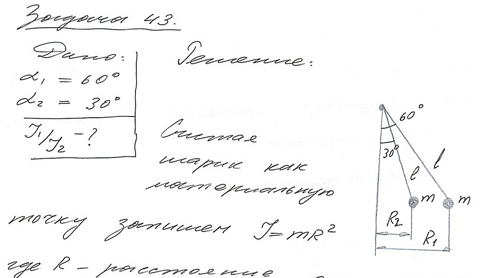 Задача 43.
Дано:
α₁ = 60°
α₂ = 30°
J₁/J₂ - ?
Решение:
Считая
шарик как
материальную
точку запишем J = mR²
где R - расстояние
60°
30°
l
l
m
m
R₂
R₁